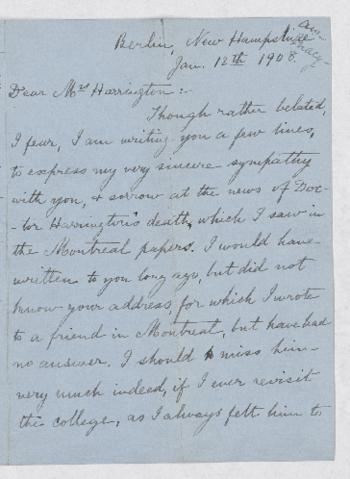 Berlin, New Hampshire
Jan. 12th 1908.
Dear Mrs Harrington:-
Though rather belated,
I fear, I am writing you a few lines,
to express my very sincere sympathy
with you, & sorrow at the news of Doc-
-tor Harrington's death, which I saw in
the Montreal papers. I would have
written to you long ago, but did not
know your address, for which I wrote
to a friend in Montreal, but have had
no answer. I should miss him
very much indeed, if I ever revisit
the college, as I always felt him to